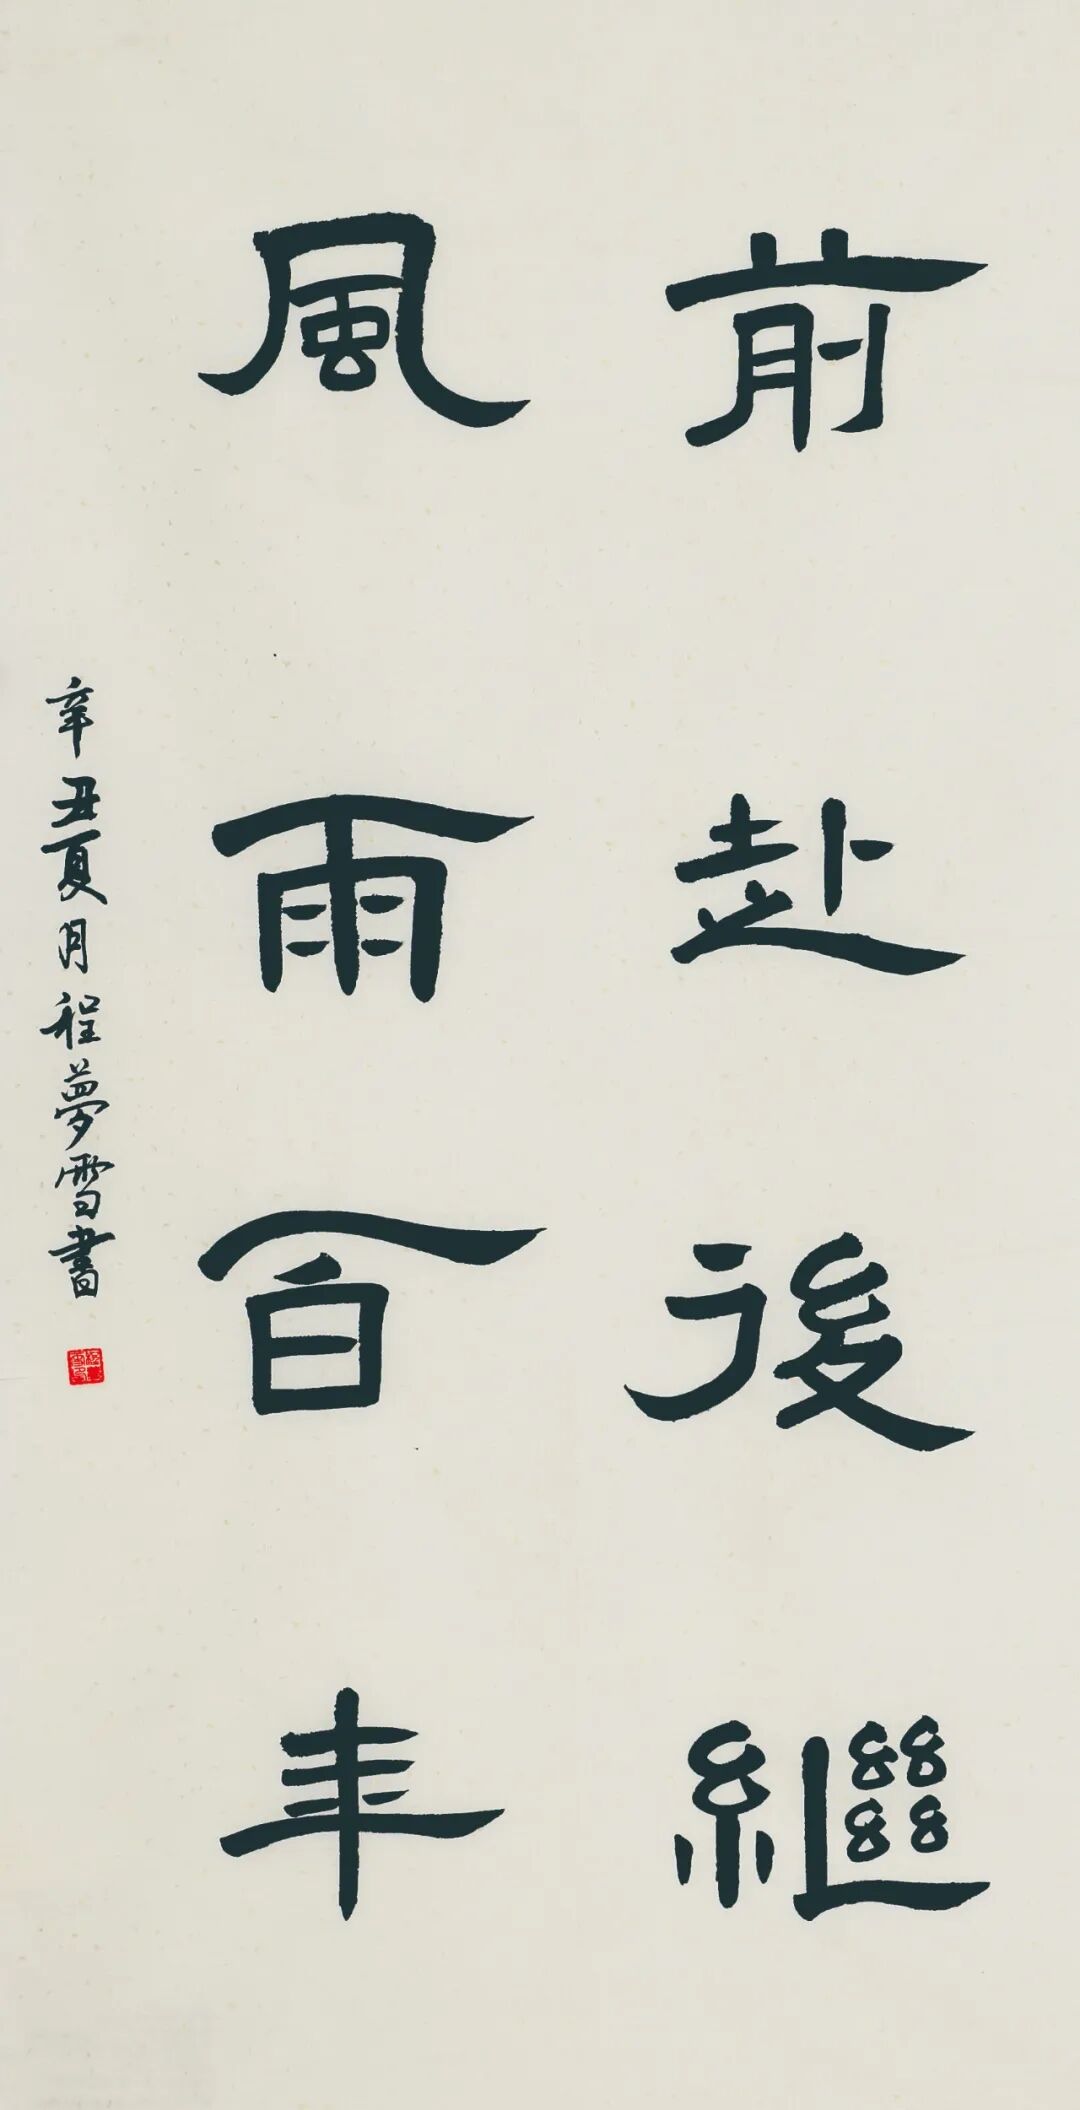 前赴後繼
風雨百年
辛丑夏月程夢雪書